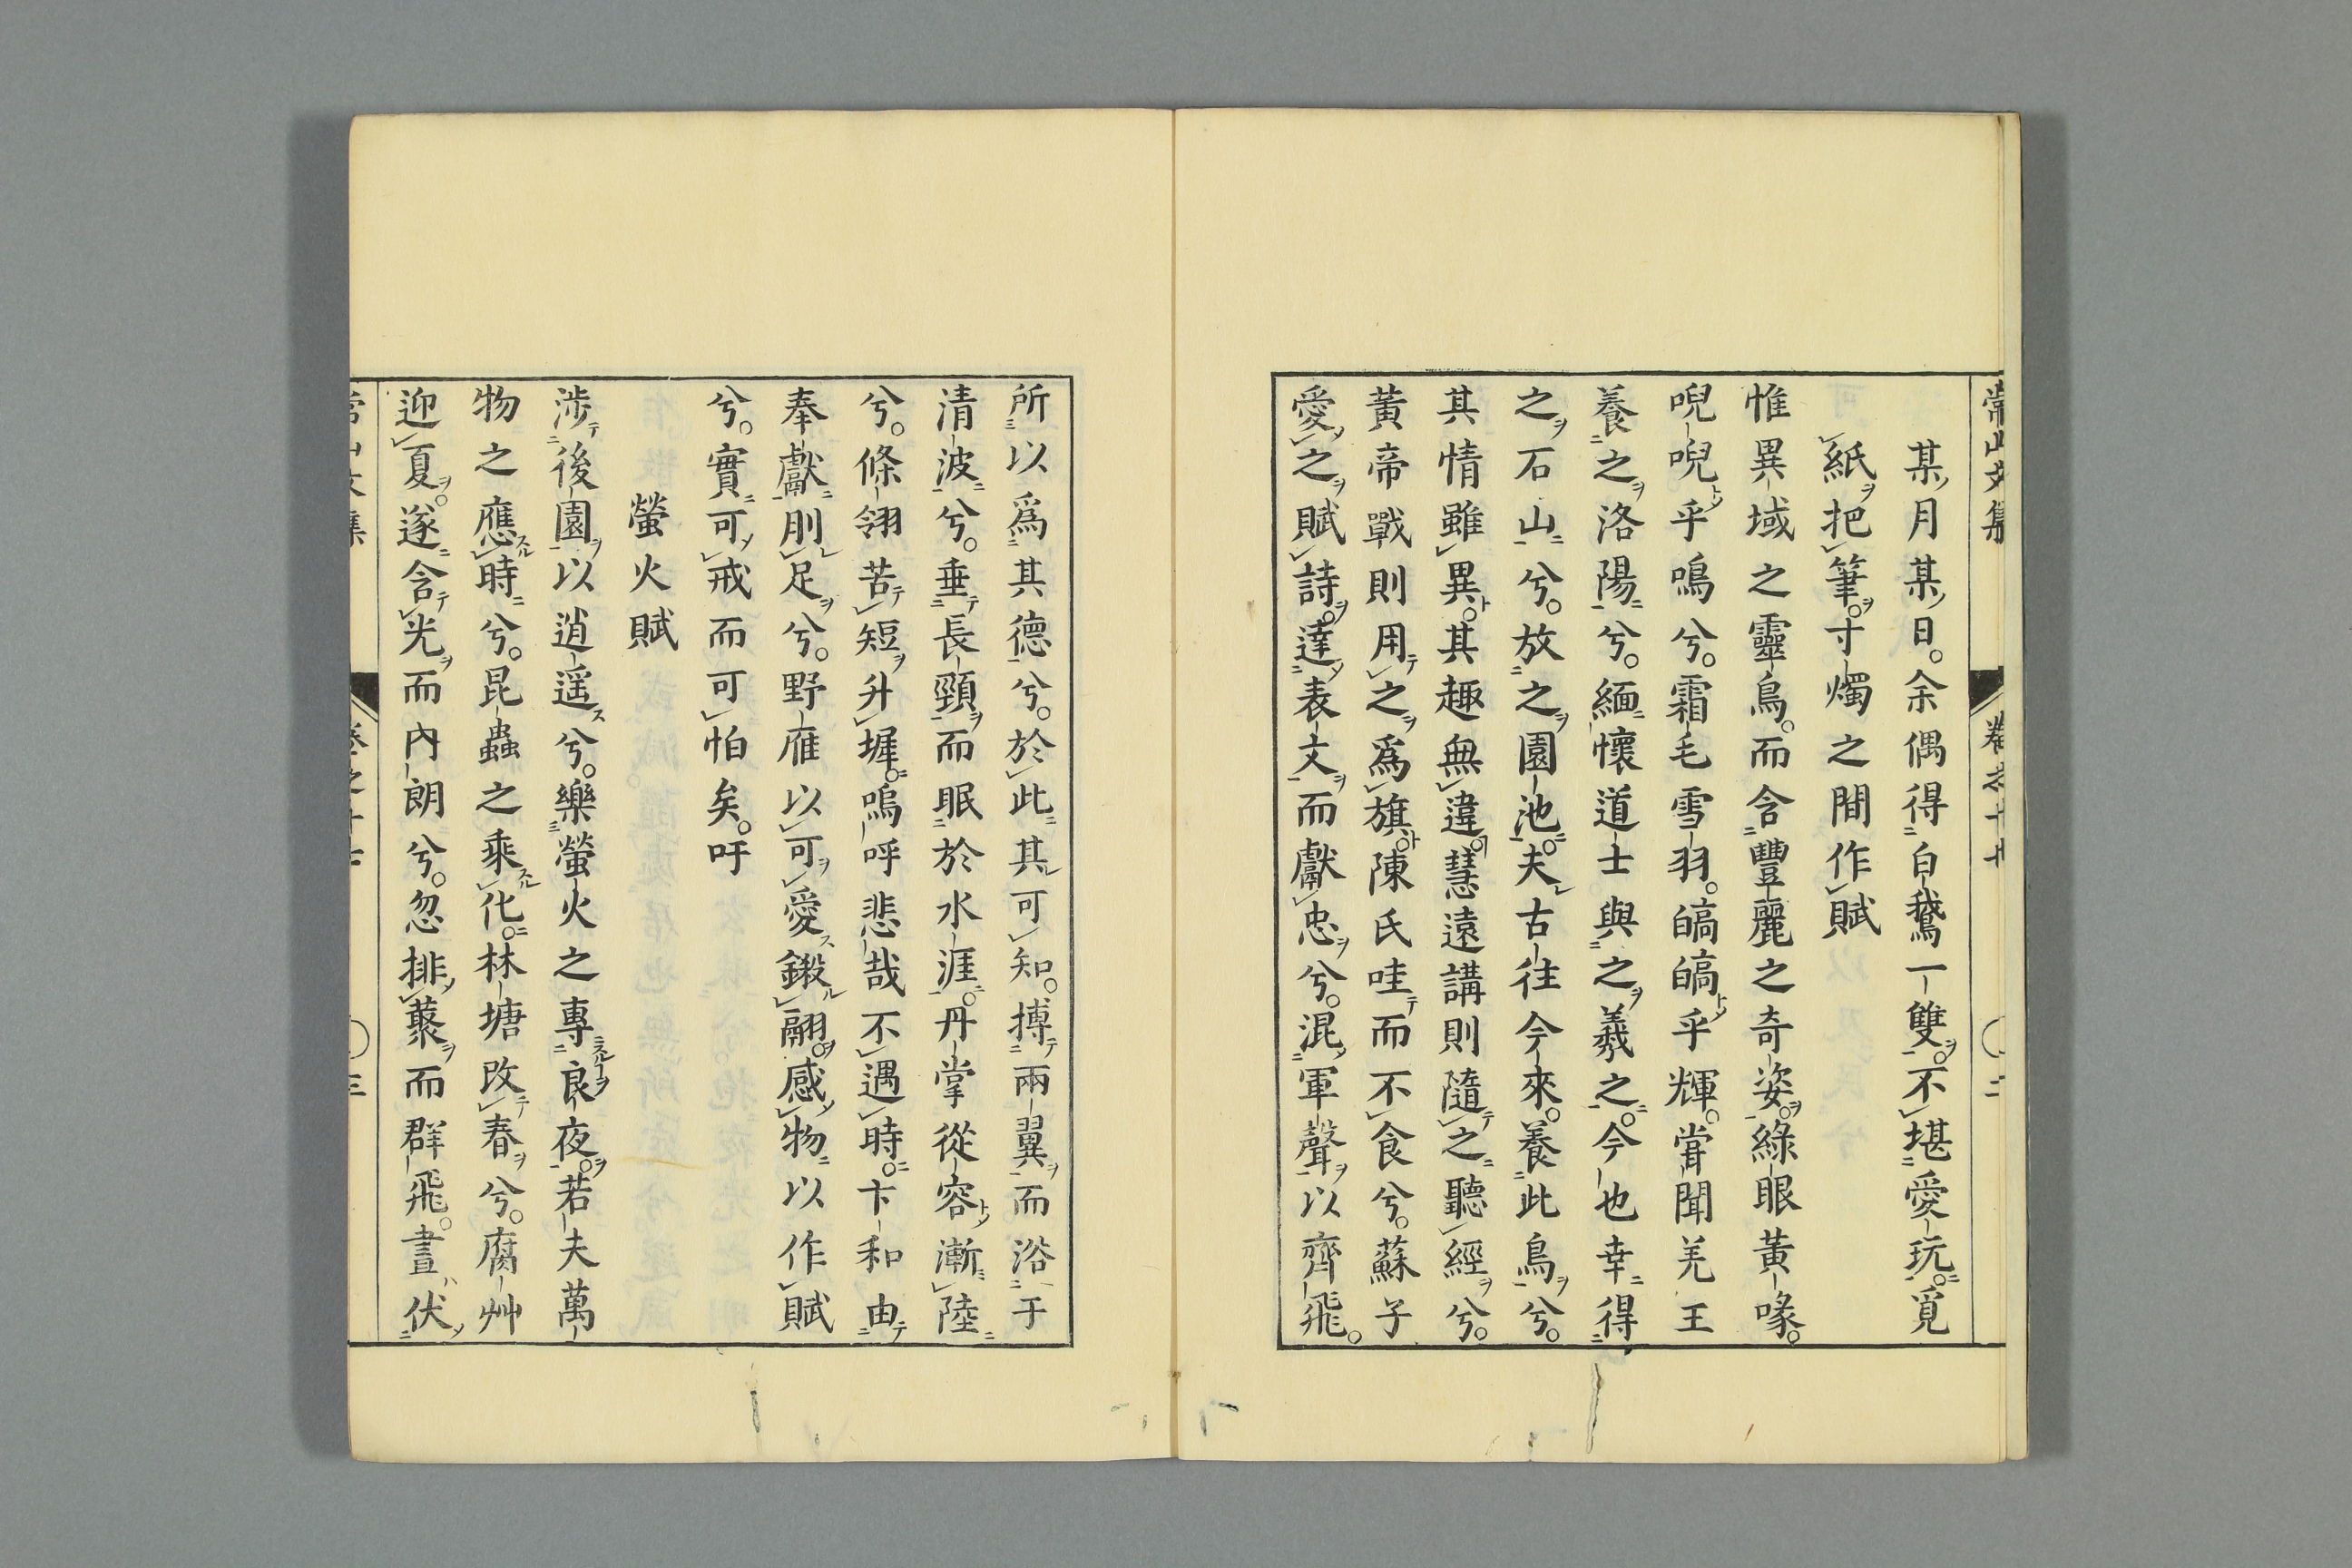 常山文集 卷之十七 〇二
某月某日。余偶得白鵞一雙。不堪愛玩。覓
紙把筆。寸燭之間作賦
惟異域之靈鳥。而含豐麗之奇姿。綠眼黃喙。
唲唲乎鳴兮。霜毛雪羽。皜皜乎輝。甞聞羌王
養之洛陽兮。緬懷道士與之羲之。今也幸得
之石山兮。放之園池。夫古往今來。養此鳥兮。
其情雖異。其趣無違。慧遠講則隨之聽經兮。
黃帝戰則用之爲旗。陳氏哇而不食兮。蘇子
愛之賦詩。達表文而獻忠兮。混軍聲以齊飛。
所以爲其德兮。於此其可知。搏兩翼而浴于
清波兮。垂長頸而眠於水涯。丹掌從容漸陸
兮。條翎苦短升墀。嗚呼悲哉不遇時。卞和由
奉獻刖足兮。野雁以可愛鍛翮。感物以作賦
兮。實可戒而可怕矣。吁
螢火賦
涉後園以逍遥兮。樂螢火之專良夜。若夫萬
物之應時兮。昆蟲之乘化。林塘改春兮。腐艸
迎夏。遂含光而內朗兮。忽排藂而群飛。晝伏
常山文集 卷之十七 〇三